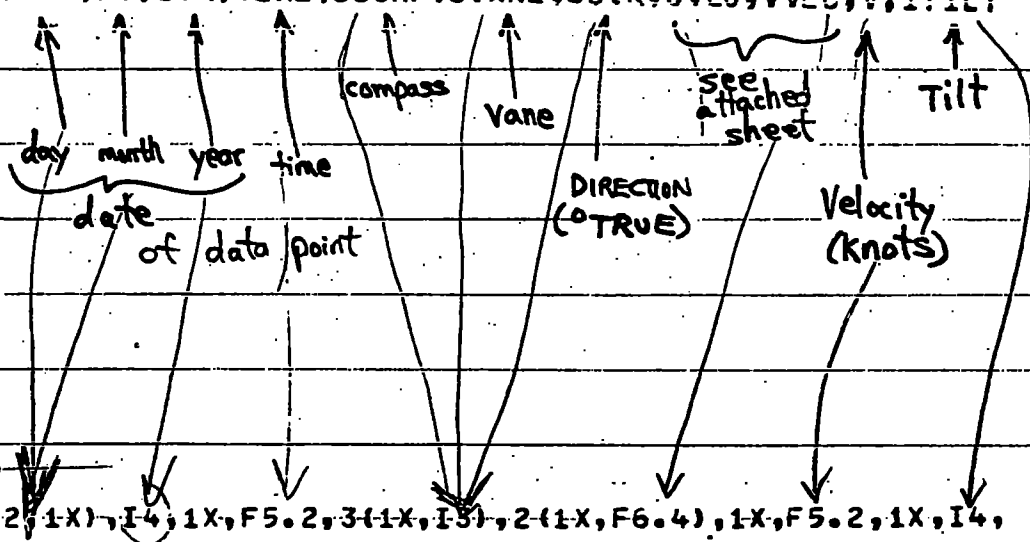 compass
Vane
see
attached
sheet
Tilt
day month year time
date
of data point
DIRECTION
(°TRUE)
Velocity
(Knots)
2,1X),I4,1X,F5.2,3(1X,I3),2(1X,F6.4),1X,F5.2,1X,I4,